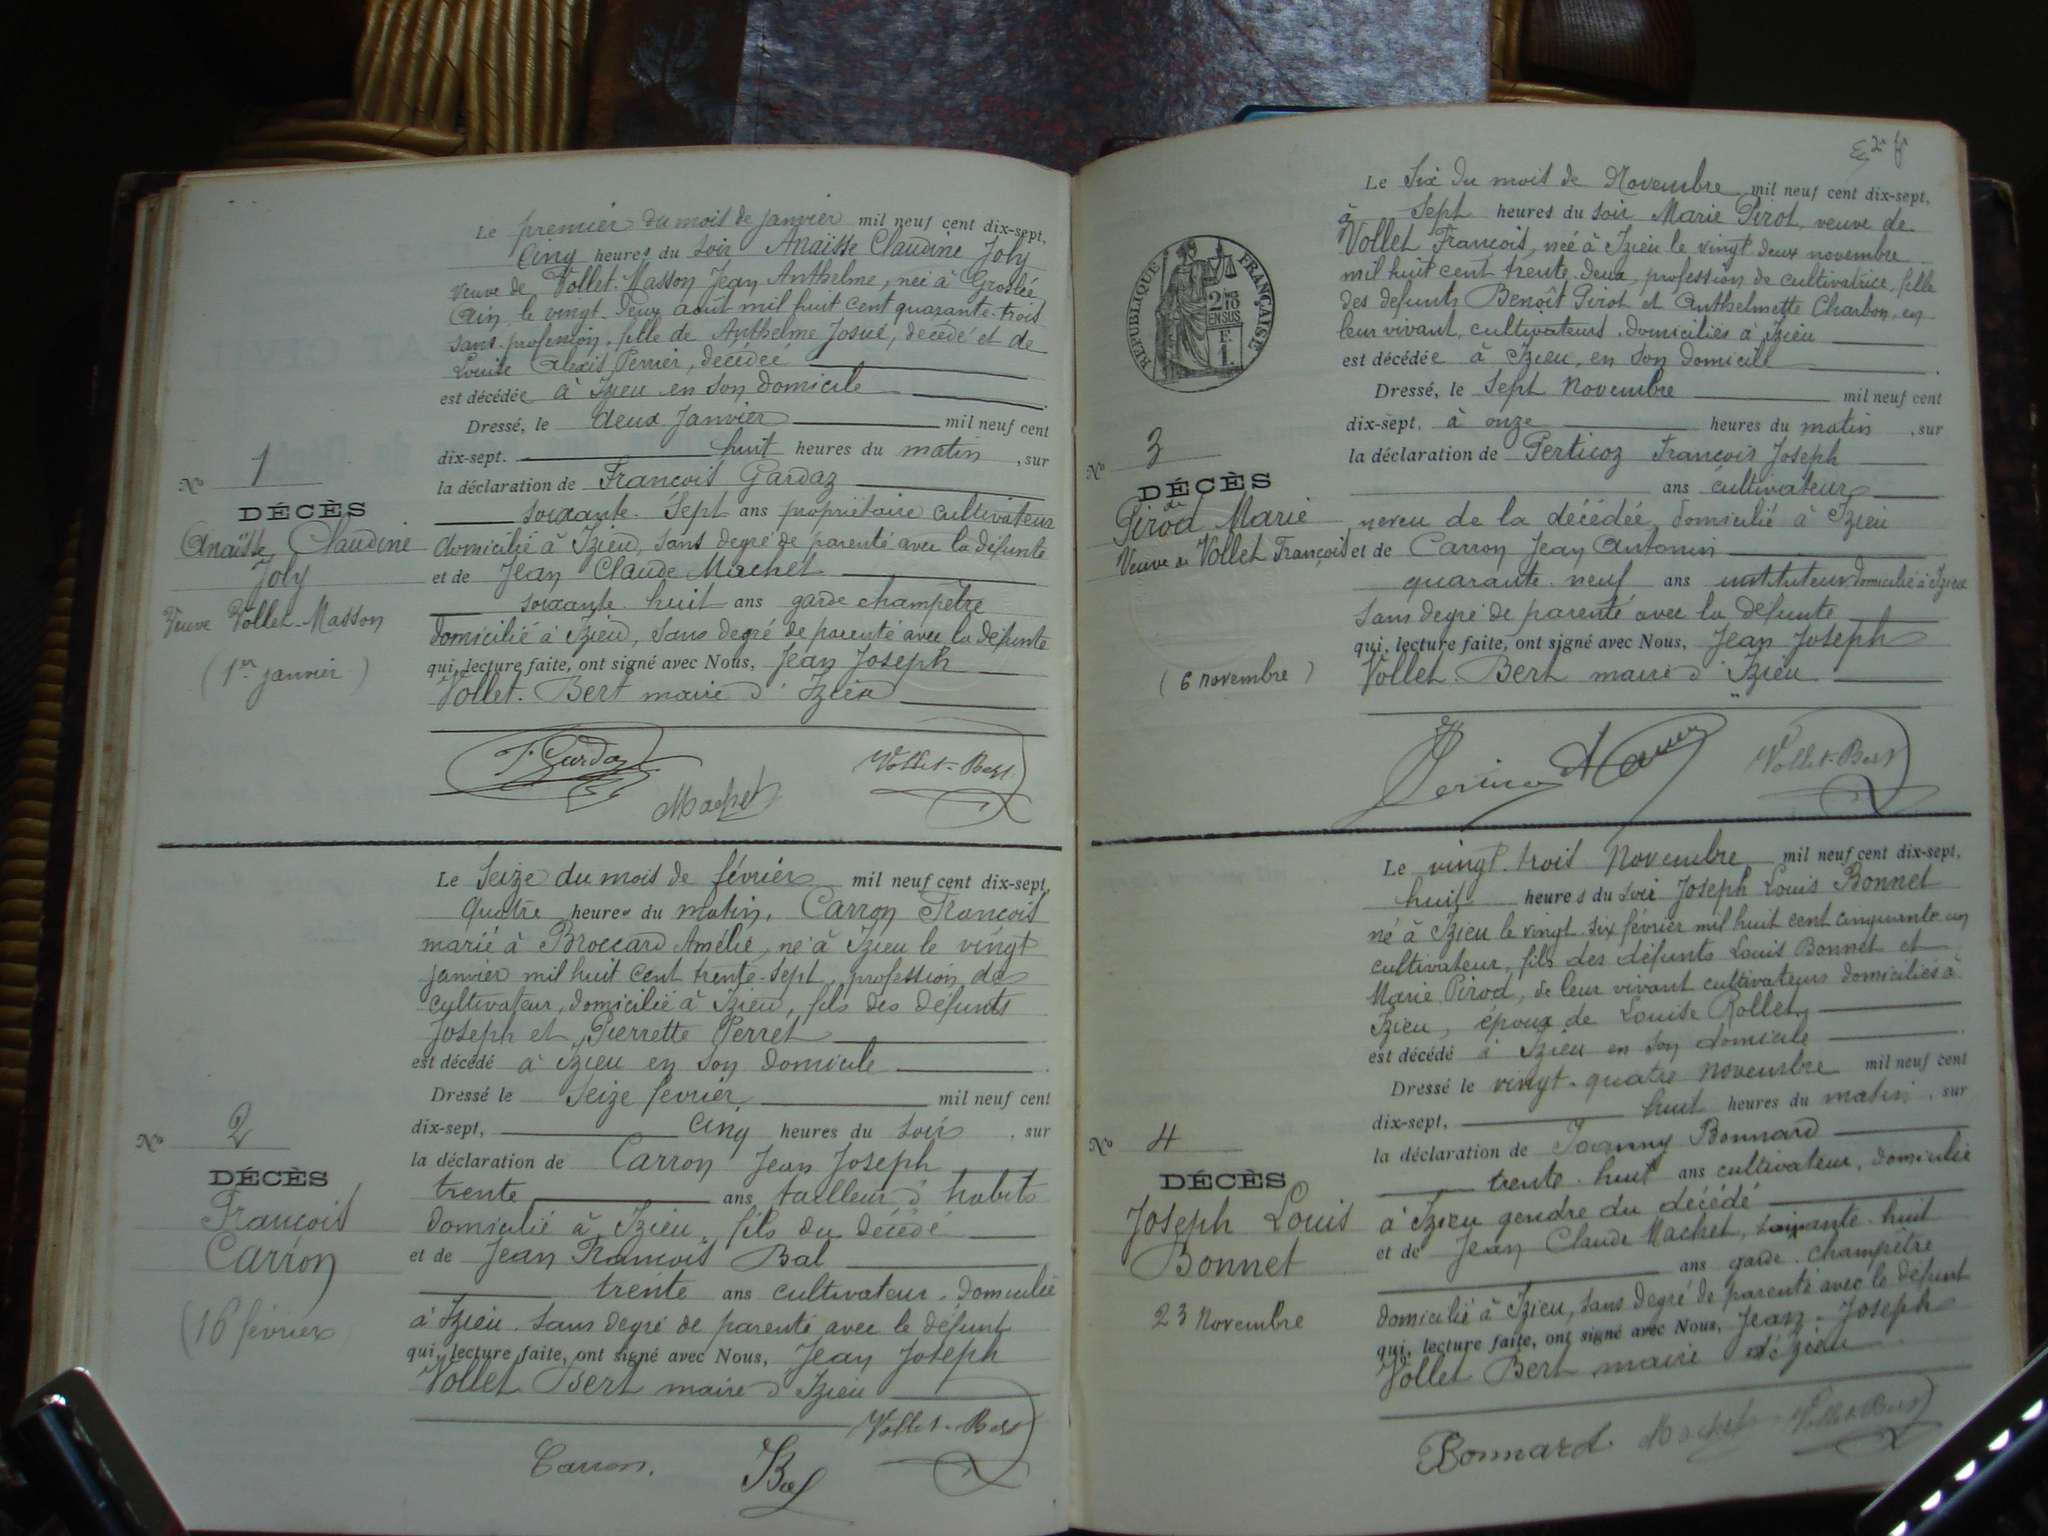 Le premier du mois de janvier mil neuf cent dix-sept,
Cinq heures du soir Anaïsse Claudine Joly
veuve de Vollet-Masson Jean Anthelme, née à Groslée
Ain, le vingt-deux août mil huit cent quarante-trois
sans profession, fille de Anthelme Josué, décédé et de
Louise Alexis Perrier, décédée
est décédée à Izieu en son domicile
Dressé, le deux janvier mil neuf cent
dix-sept. huit heures du matin, sur
la déclaration de François Gardaz
soixante-sept ans propriétaire cultivateur
domicilié à Izieu, sans degré de parenté avec la défunte
et de Jean Claude Machet
soixante-huit ans garde champêtre
domicilié à Izieu, sans degré de parenté avec la défunte
qui, lecture faite, ont signé avec Nous, Jean Joseph
Vollet-Bert maire d'Izieu
No 1
DÉCÈS
Anaïsse Claudine
Joly
Veuve Vollet-Masson
(1er janvier)
F. Gardaz
Machet
Vollet-Bert
Le Seize du mois de février mil neuf cent dix-sept,
quatre heures du matin, Carron François
marié à Broccard Amélie, né à Izieu le vingt
janvier mil huit cent trente-sept, profession de
cultivateur, domicilié à Izieu, fils des défunts
Joseph et Pierrette Perret
est décédé à Izieu en son domicile
Dressé le Seize février mil neuf cent
dix-sept, cinq heures du soir, sur
la déclaration de Carron Jean Joseph
trente ans tailleur d'habits
domicilié à Izieu, fils du décédé
et de Jean François Bal
trente ans cultivateur, domicilié
à Izieu, sans degré de parenté avec le défunt
qui, lecture faite, ont signé avec Nous, Jean Joseph
Vollet Bert maire d'Izieu
No 2
DÉCÈS
François
Carron
(16 février)
Carron.
Bal
Vollet-Bert
Le Six du mois de Novembre mil neuf cent dix-sept,
à sept heures du soir Marie Pirot, veuve de
Vollet François, née à Izieu le vingt-deux novembre
mil huit cent trente-deux, profession de cultivatrice, fille
des defunts Benoît Pirot et Anthelmette Charbon, en
leur vivant, cultivateurs domiciliés à Izieu
est décédée à Izieu, en son domicile
Dressé, le sept Novembre mil neuf cent
dix-sept, à onze heures du matin, sur
la déclaration de Perticoz François Joseph
ans cultivateur
neveu de la décédée domicilié à Izieu
et de Carron Jean Antonin
quarante-neuf ans instituteur domicilié à Izieu
sans degré de parenté avec la défunte
qui, lecture faite, ont signé avec Nous, Jean Joseph
Vollet Bert maire d'Izieu
RÉPUBLIQUE FRANÇAISE
No 3
DÉCÈS
de
Pirod Marie
Veuve de Vollet François
(6 novembre)
Vollet-Bert
Le vingt-trois Novembre mil neuf cent dix-sept,
huit heures du soir Joseph Louis Bonnet
né à Izieu le vingt-six février mil huit cent cinquante-un
cultivateur, fils des défunts Louis Bonnet et
Marie Pirod, de leur vivant cultivateurs domiciliés à
Izieu, époux de Louise Rollet,
est décédé à Izieu en son domicile
Dressé le vingt-quatre novembre mil neuf cent
dix-sept, huit heures du matin, sur
la déclaration de Joanny Bonnard
trente-huit ans cultivateur, domicilié
à Izieu gendre du décédé
et de Jean Claude Machet, soixante-huit
ans garde-champêtre
domicilié à Izieu, sans degré de parenté avec le défunt
qui, lecture faite, ont signé avec Nous, Jean-Joseph
Vollet Bert maire d'Izieu
No 4
DÉCÈS
Joseph Louis
Bonnet
23 Novembre
Bonnard. Machet Vollet-Bert